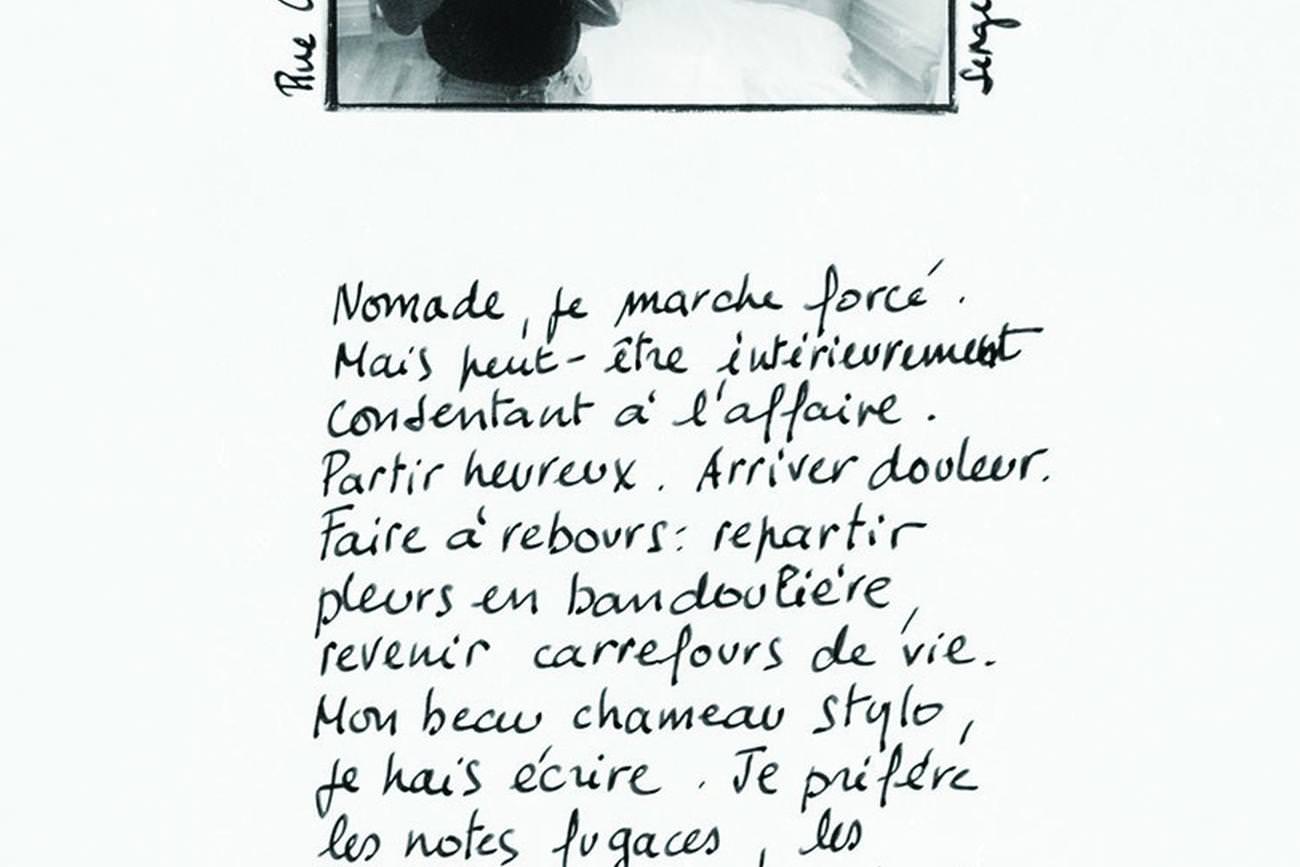 Rue
Serge
Nomade, je marche forcé.
Mais peut-être intérieurement
consentant à l'affaire.
Partir heureux. Arriver douleur.
Faire à rebours: repartir
pleurs en bandoulière,
revenir carrefours de vie.
Mon beau chameau stylo,
je hais écrire. Je préfére
les notes fugaces, les